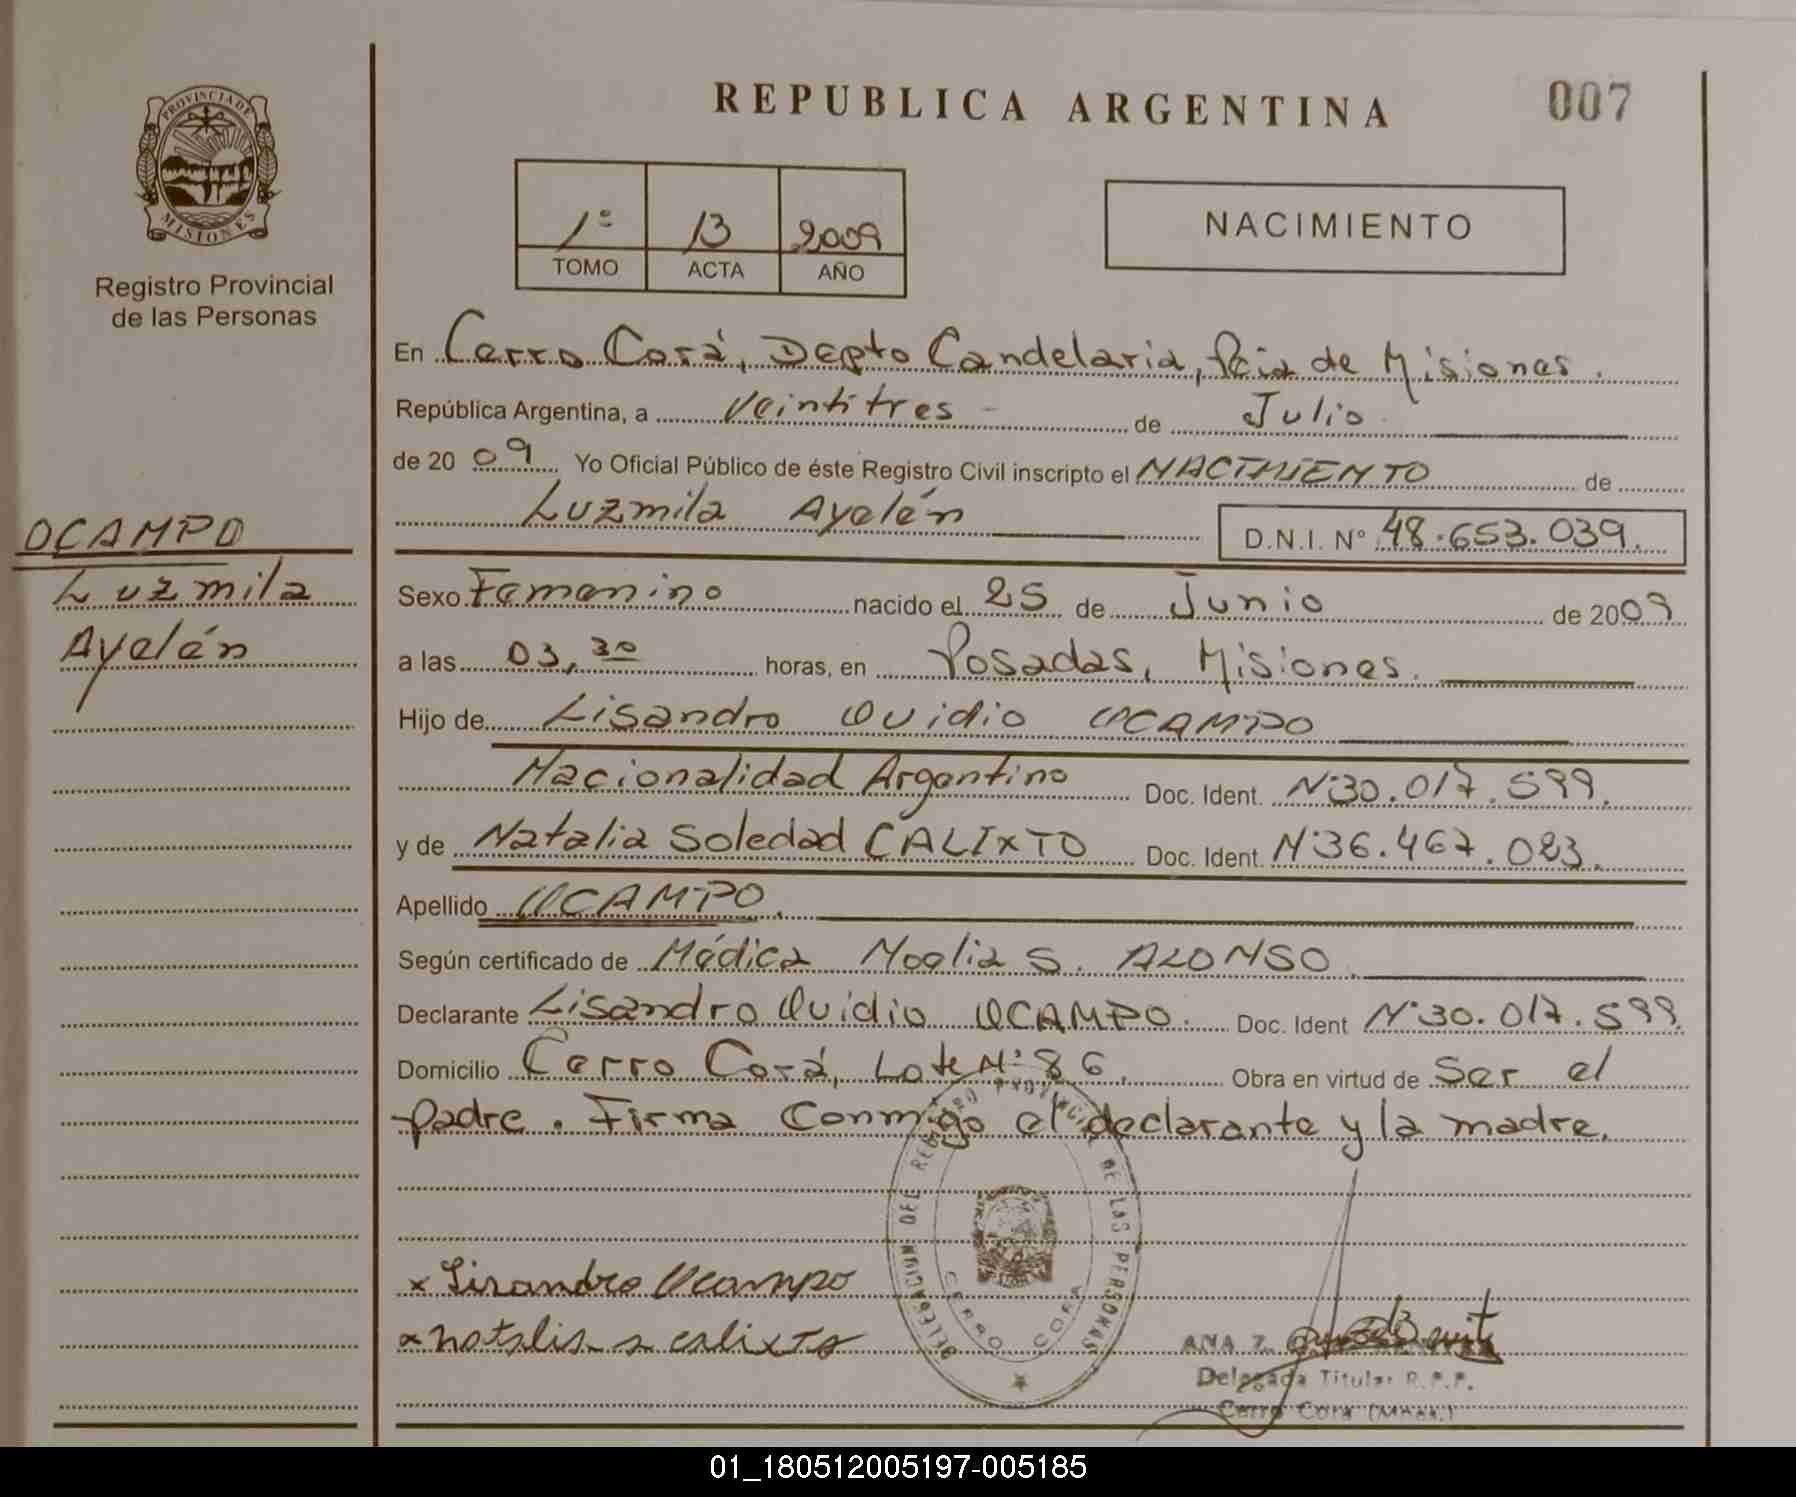 REPUBLICA ARGENTINA
007
PROVINCIA DE
MISIONES
Registro Provincial
de las Personas
1º 13 2009
TOMO ACTA AÑO
NACIMIENTO
En Cerro Corá, Depto Candelaria, Pcia de Misiones.
República Argentina, a Veintitres de Julio
de 2009 Yo Oficial Público de éste Registro Civil inscripto el NACIMIENTO de
Luzmila Ayelén D.N.I. Nº 48.653.039.
OCAMPO
Luzmila
Ayelén
Sexo Femenino nacido el 25 de Junio de 2009
a las 03,30 horas, en Posadas, Misiones.
Hijo de Lisandro Ovidio OCAMPO
Nacionalidad Argentino Doc. Ident. Nº30.017.599.
y de Natalia Soledad CALIXTO Doc. Ident. Nº36.467.023.
Apellido OCAMPO.
Según certificado de Médica Noelia S. ALONSO.
Declarante Lisandro Ovidio OCAMPO. Doc. Ident Nº30.017.599.
Domicilio Cerro Corá, Lote Nº 86. Obra en virtud de Ser el
padre. Firma Conmigo el declarante y la madre.
DELEGACION DEL REGISTRO PROVINCIAL DE LAS PERSONAS
CERRO CORA
x Lisandro Ocampo
x Natalia S calixto
ANA Z.
Delegada Titular R.P.P.
Cerro Cora (Mnes.)
01_180512005197-005185